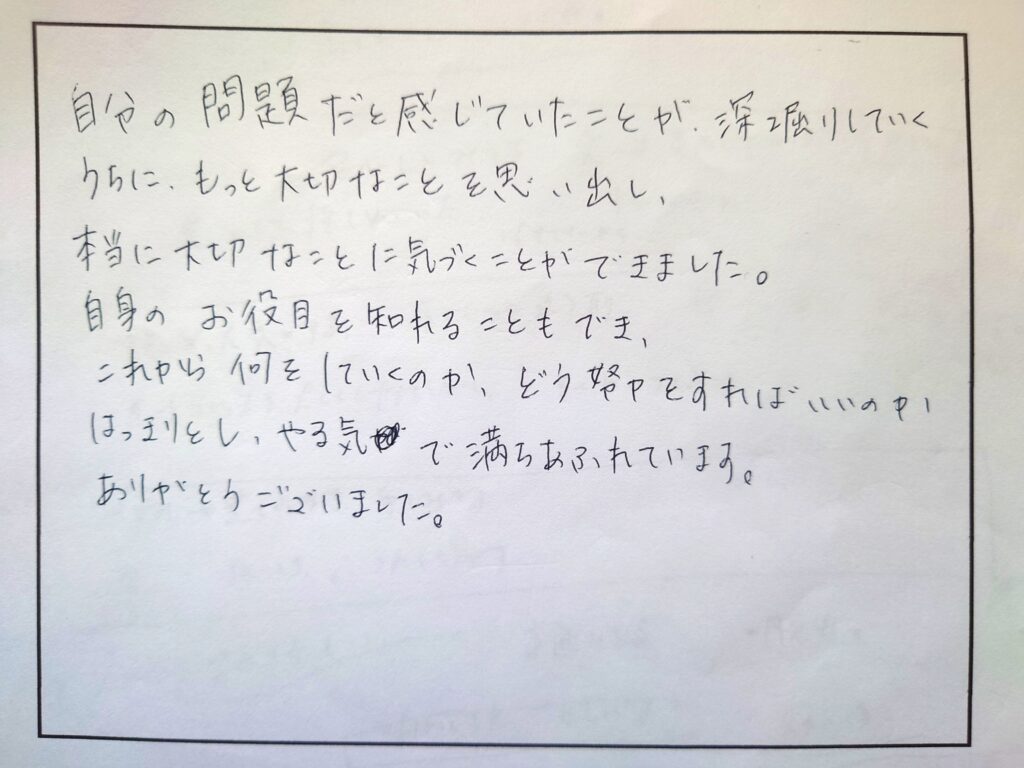 自分の問題だと感じていたことが、深堀りしていく
うちに、もっと大切なことを思い出し、
本当に大切なことに気づくことができました。
自身のお役目を知れることもでき、
これから何をしていくのか、どう努力をすればいいのか
はっきりとし、やる気で満ちあふれています。
ありがとうございました。